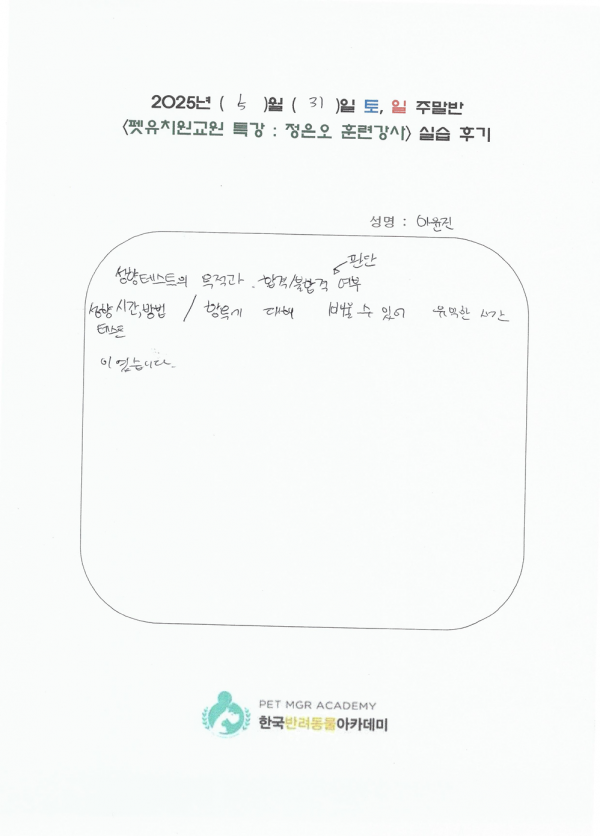 2025년 ( 5 )월 ( 31 )일 토, 일 주말반
<펫유치원교원 특강 : 정은오 훈련강사> 실습 후기
성명 : 이윤진
판단
성향테스트의 목적과. 합격/불합격 여부
성향 시간, 방법 / 항목에 대해 배울 수 있어 유익한 시간
테스트
이었습니다.
PET MGR ACADEMY
한국반려동물아카데미